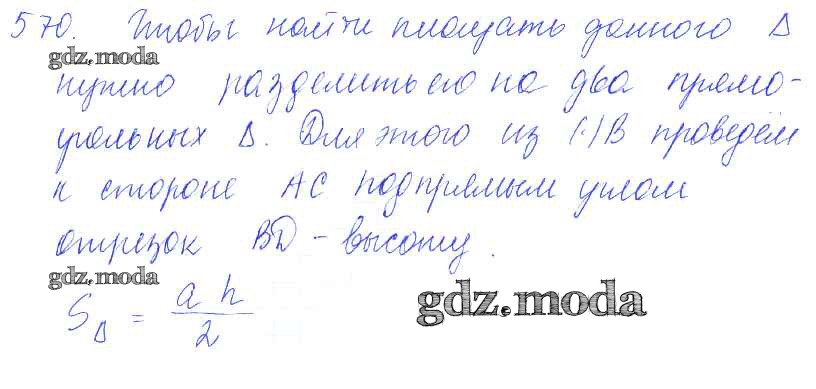 570. Чтобы найти площадь данного Δ
gdz.moda
нужно разделить его на два прямо-
угольных Δ. Для этого из (·)В проведём
к стороне АС под прямым углом
отрезок BD - высоту.
gdz.moda
S_Δ = a h / 2
gdz.moda